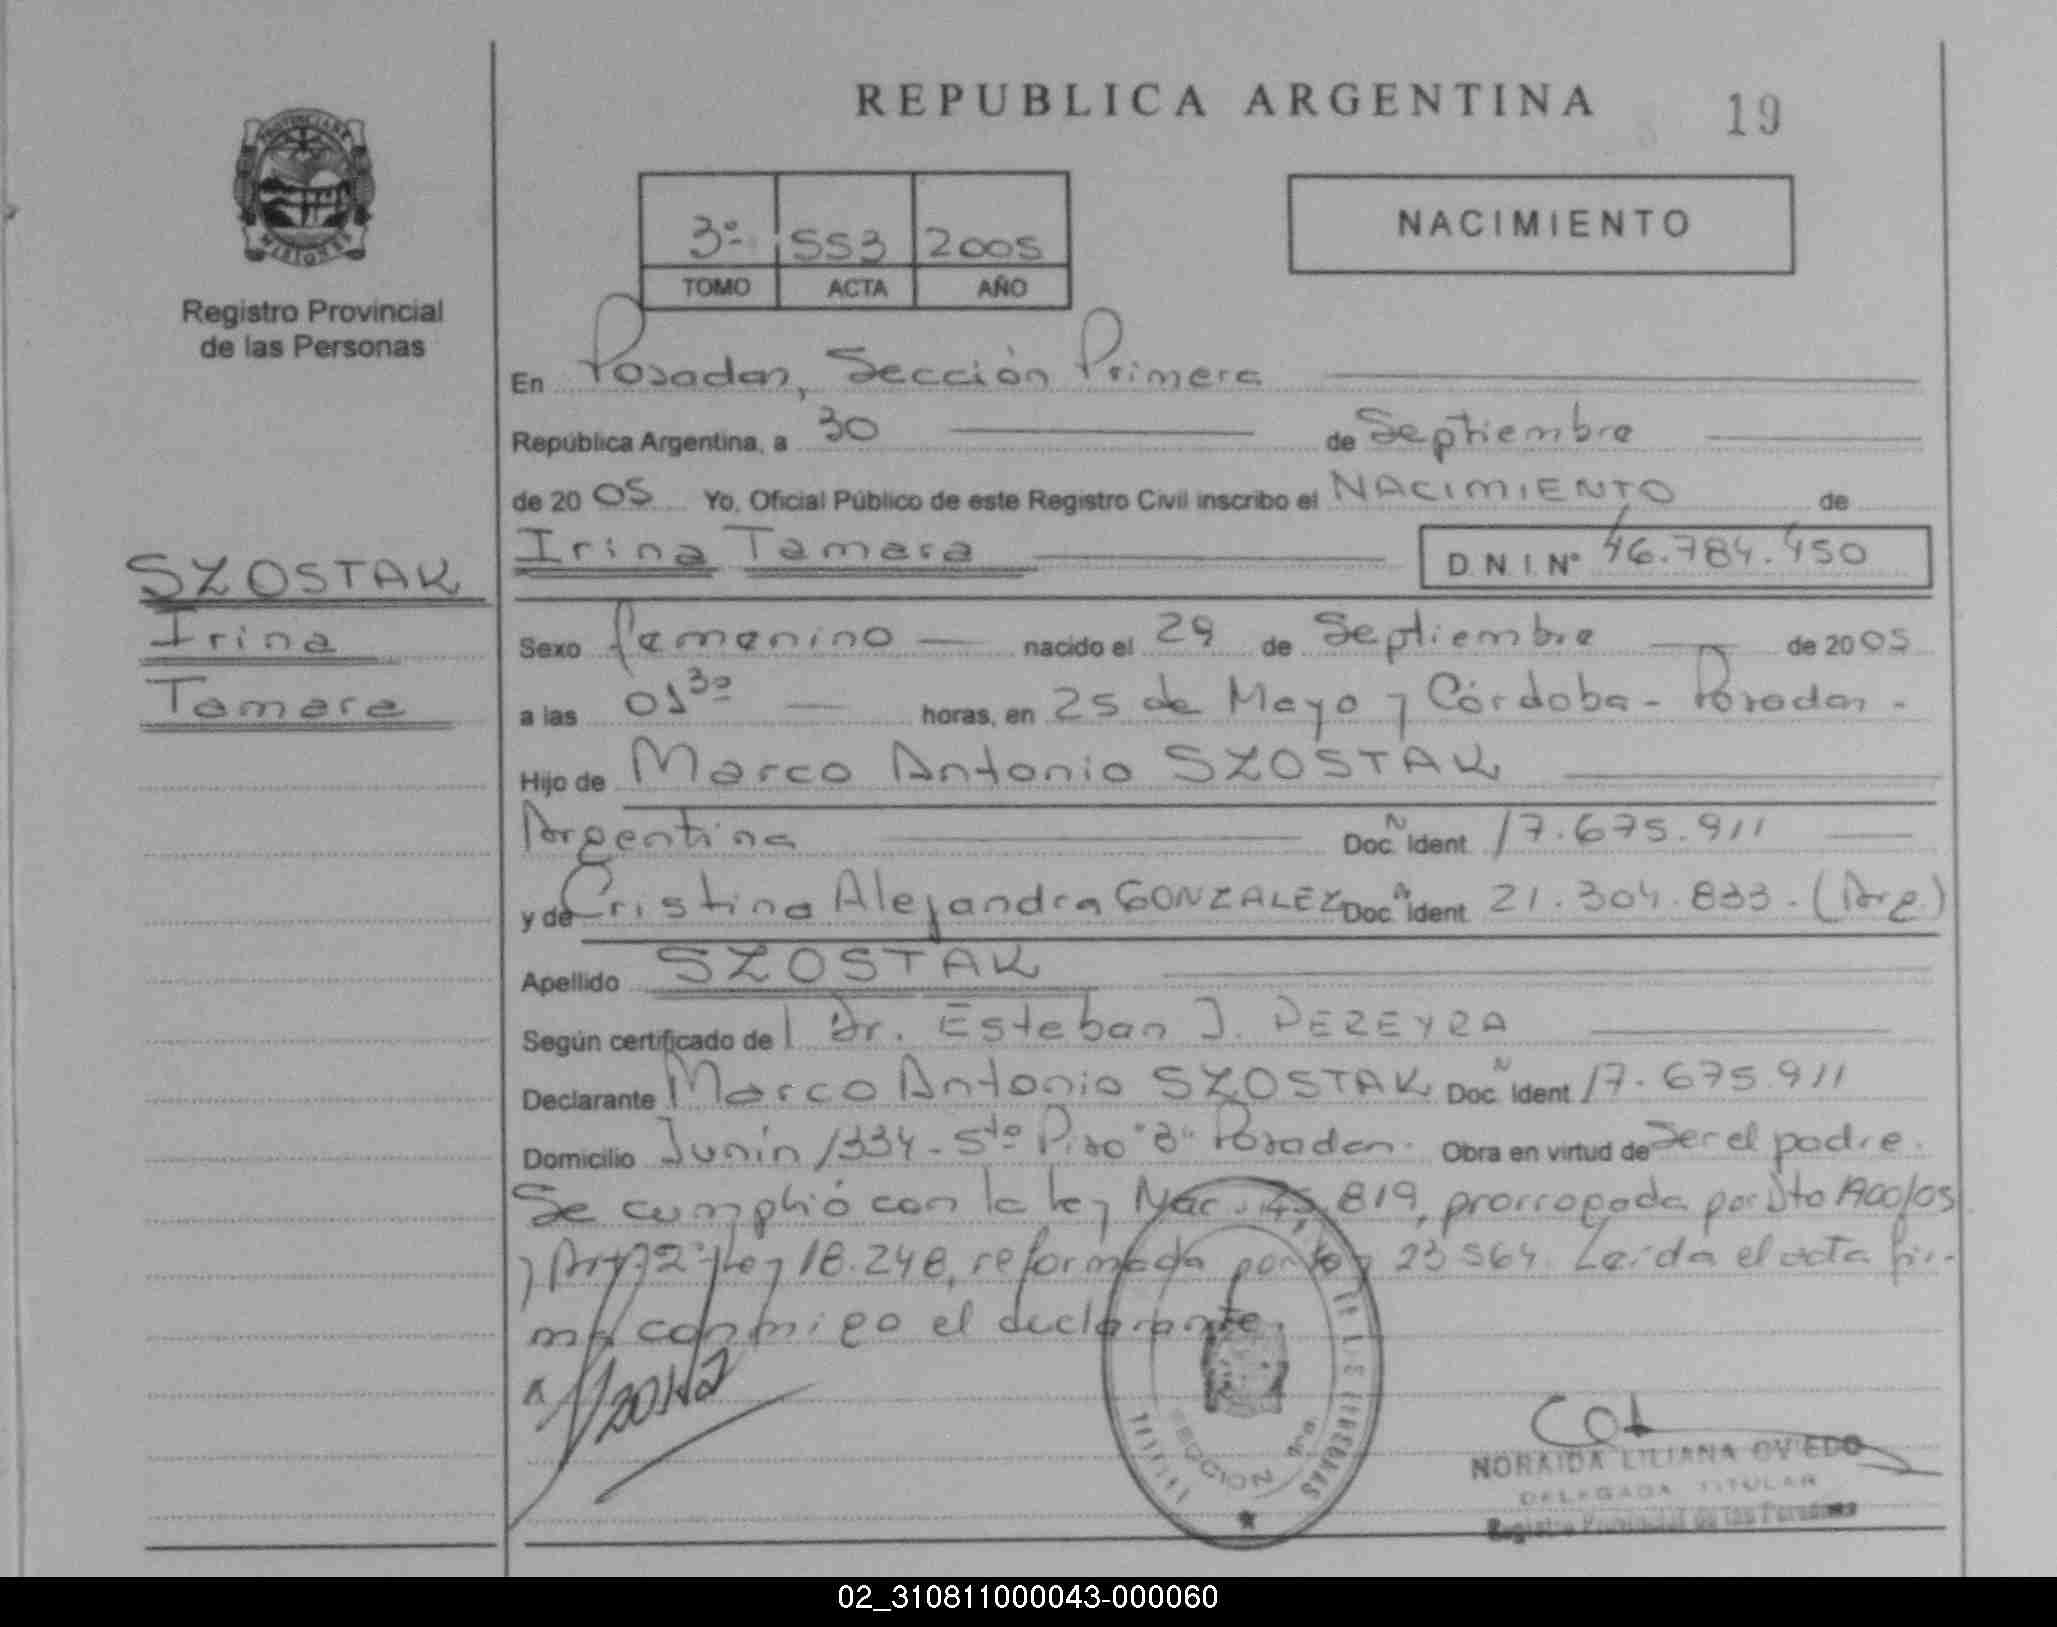 REPUBLICA ARGENTINA 19
PROVINCIA DE MISIONES
Registro Provincial
de las Personas
3º 553 2005
TOMO ACTA AÑO
NACIMIENTO
En Posadas, Sección Primera
República Argentina, a 30 de Septiembre
de 2005 Yo, Oficial Público de este Registro Civil inscribo el NACIMIENTO de
Irina Tamara D.N.I. Nº 46.784.450
SZOSTAK
Irina
Tamara
Sexo femenino nacido el 29 de Septiembre de 2005
a las 01 30 horas, en 25 de Mayo y Córdoba - Posadas -
Hijo de Marco Antonio SZOSTAK
Argentina Doc. N Ident. 17.675.911
y de Cristina Alejandra GONZALEZ Doc. N Ident. 21.304.833. (Arg.)
Apellido SZOSTAK
Según certificado de Dr. Esteban J. PEREYRA
Declarante Marco Antonio SZOSTAK Doc. N Ident. 17.675.911
Domicilio Junín 1334 - 5to Piso "B" Posadas. Obra en virtud de Ser el padre.
Se cumplió con la ley Nac. 25,819, prorrogada por Dto 1900/05
y Art. 2º Ley 18.248, reformada por ley 23564. Leída el acta fir-
ma conmigo el declarante.
SECCION 1ra.
NORAIDA LILIANA OVIEDO
DELEGADA TITULAR
Registro Provincial de las Personas
02_310811000043-000060